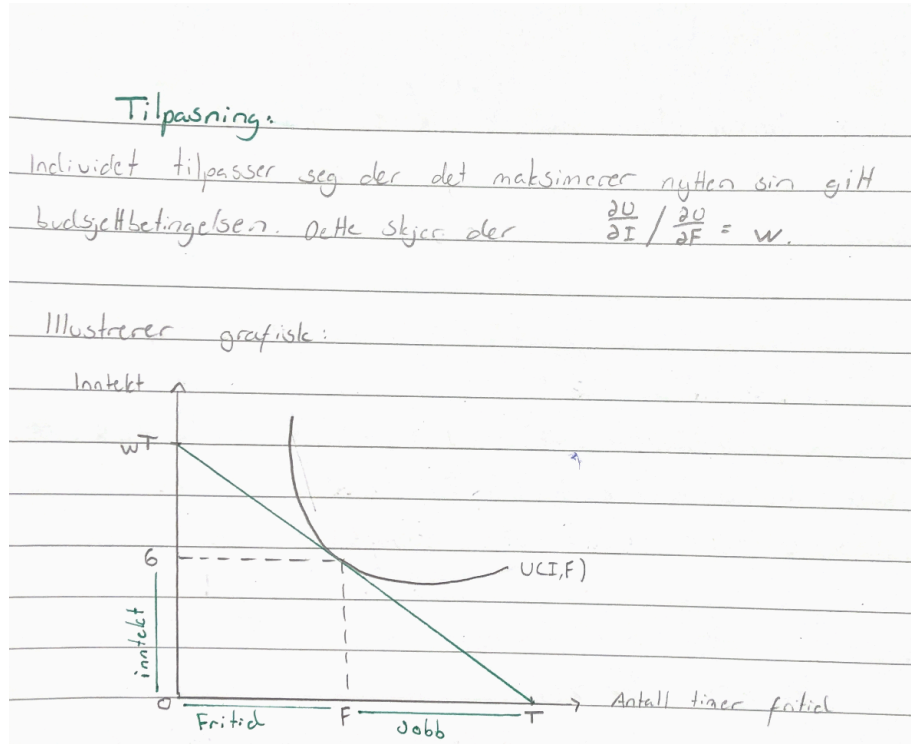 Tilpasning:
Individet tilpasser seg der det maksimerer nytten sin gitt
budsjettbetingelsen. Dette skjer der ∂U/∂I / ∂U/∂F = w.
Illustrerer grafisk:
Inntekt
wT
6
U(I,F)
inntekt
0
Fritid
F
Jobb
T
Antall timer fritid